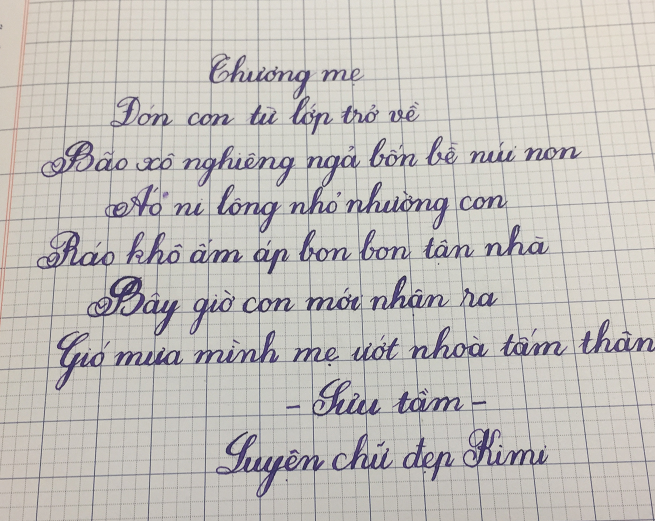 Thương mẹ
Đón con từ lớp trở về
Bão xô nghiêng ngả bốn bề núi non
Áo ni lông nhỏ nhường con
Ráo khô ấm áp bon bon tận nhà
Bây giờ con mới nhận ra
Gió mưa mình mẹ ướt nhoà tấm thân
- Sưu tầm -
Luyện chữ đẹp Kimi